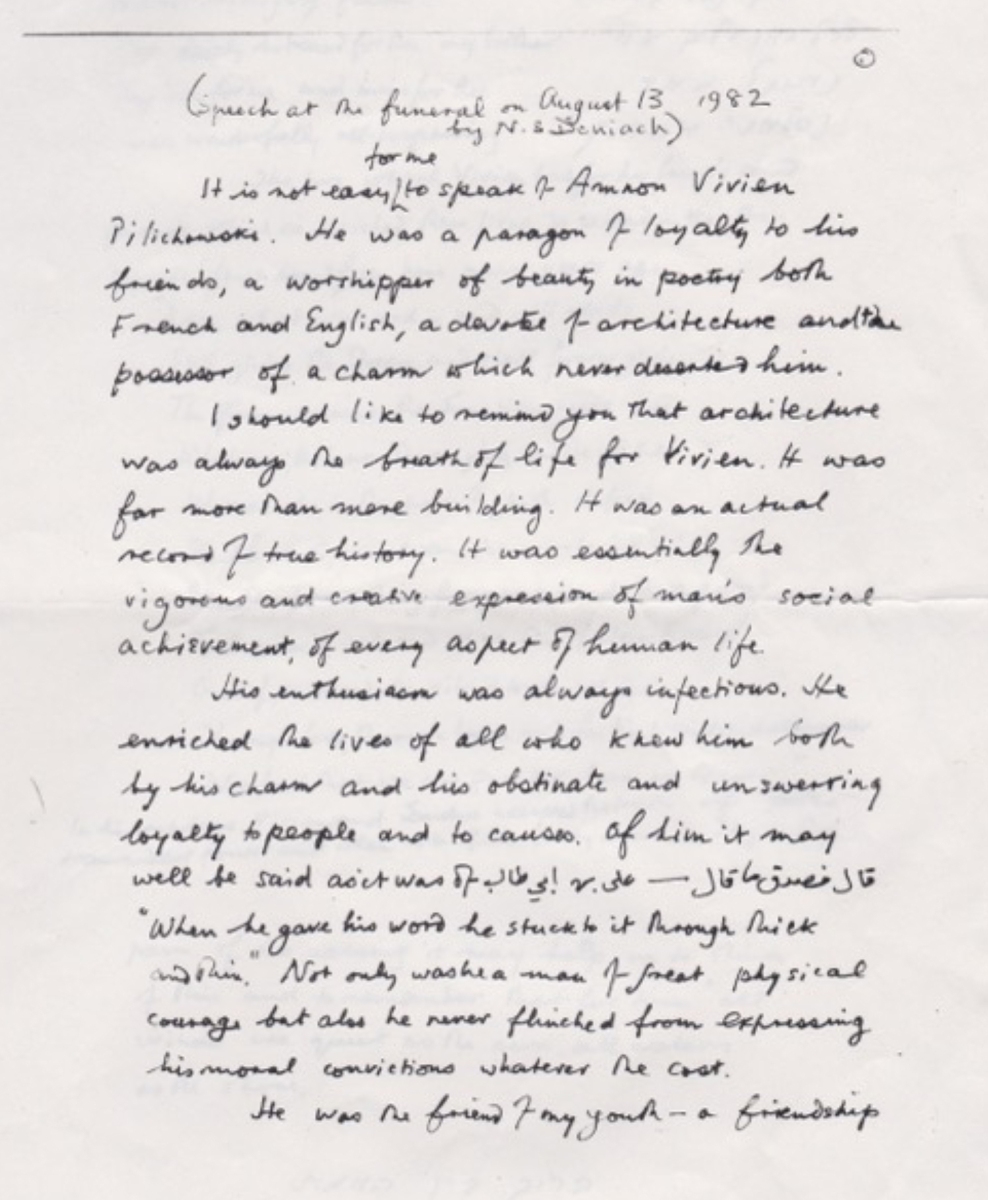 (Speech at the funeral on August 13 1982
by N.S Doniach)
for me
It is not easy to speak of Amnon Vivien
Pilichowski. He was a paragon of loyalty to his
friends, a worshipper of beauty in poetry both
French and English, a devotee of architecture and the
possessor of a charm which never deserted him.
I should like to remind you that architecture
was always the breath of life for Vivien. It was
far more than mere building. It was an actual
record of true history. It was essentially the
vigorous and creative expression of man's social
achievement, of every aspect of human life.
His enthusiasm was always infectious. He
enriched the lives of all who knew him both
by his charm and his obstinate and unswerving
loyalty to people and to causes. Of him it may
well be said as it was of علي b. أبي طالب — قال فصدق ما قال
"When he gave his word he stuck to it through thick
and thin." Not only was he a man of great physical
courage but also he never flinched from expressing
his moral convictions whatever the cost.
He was the friend of my youth - a friendship